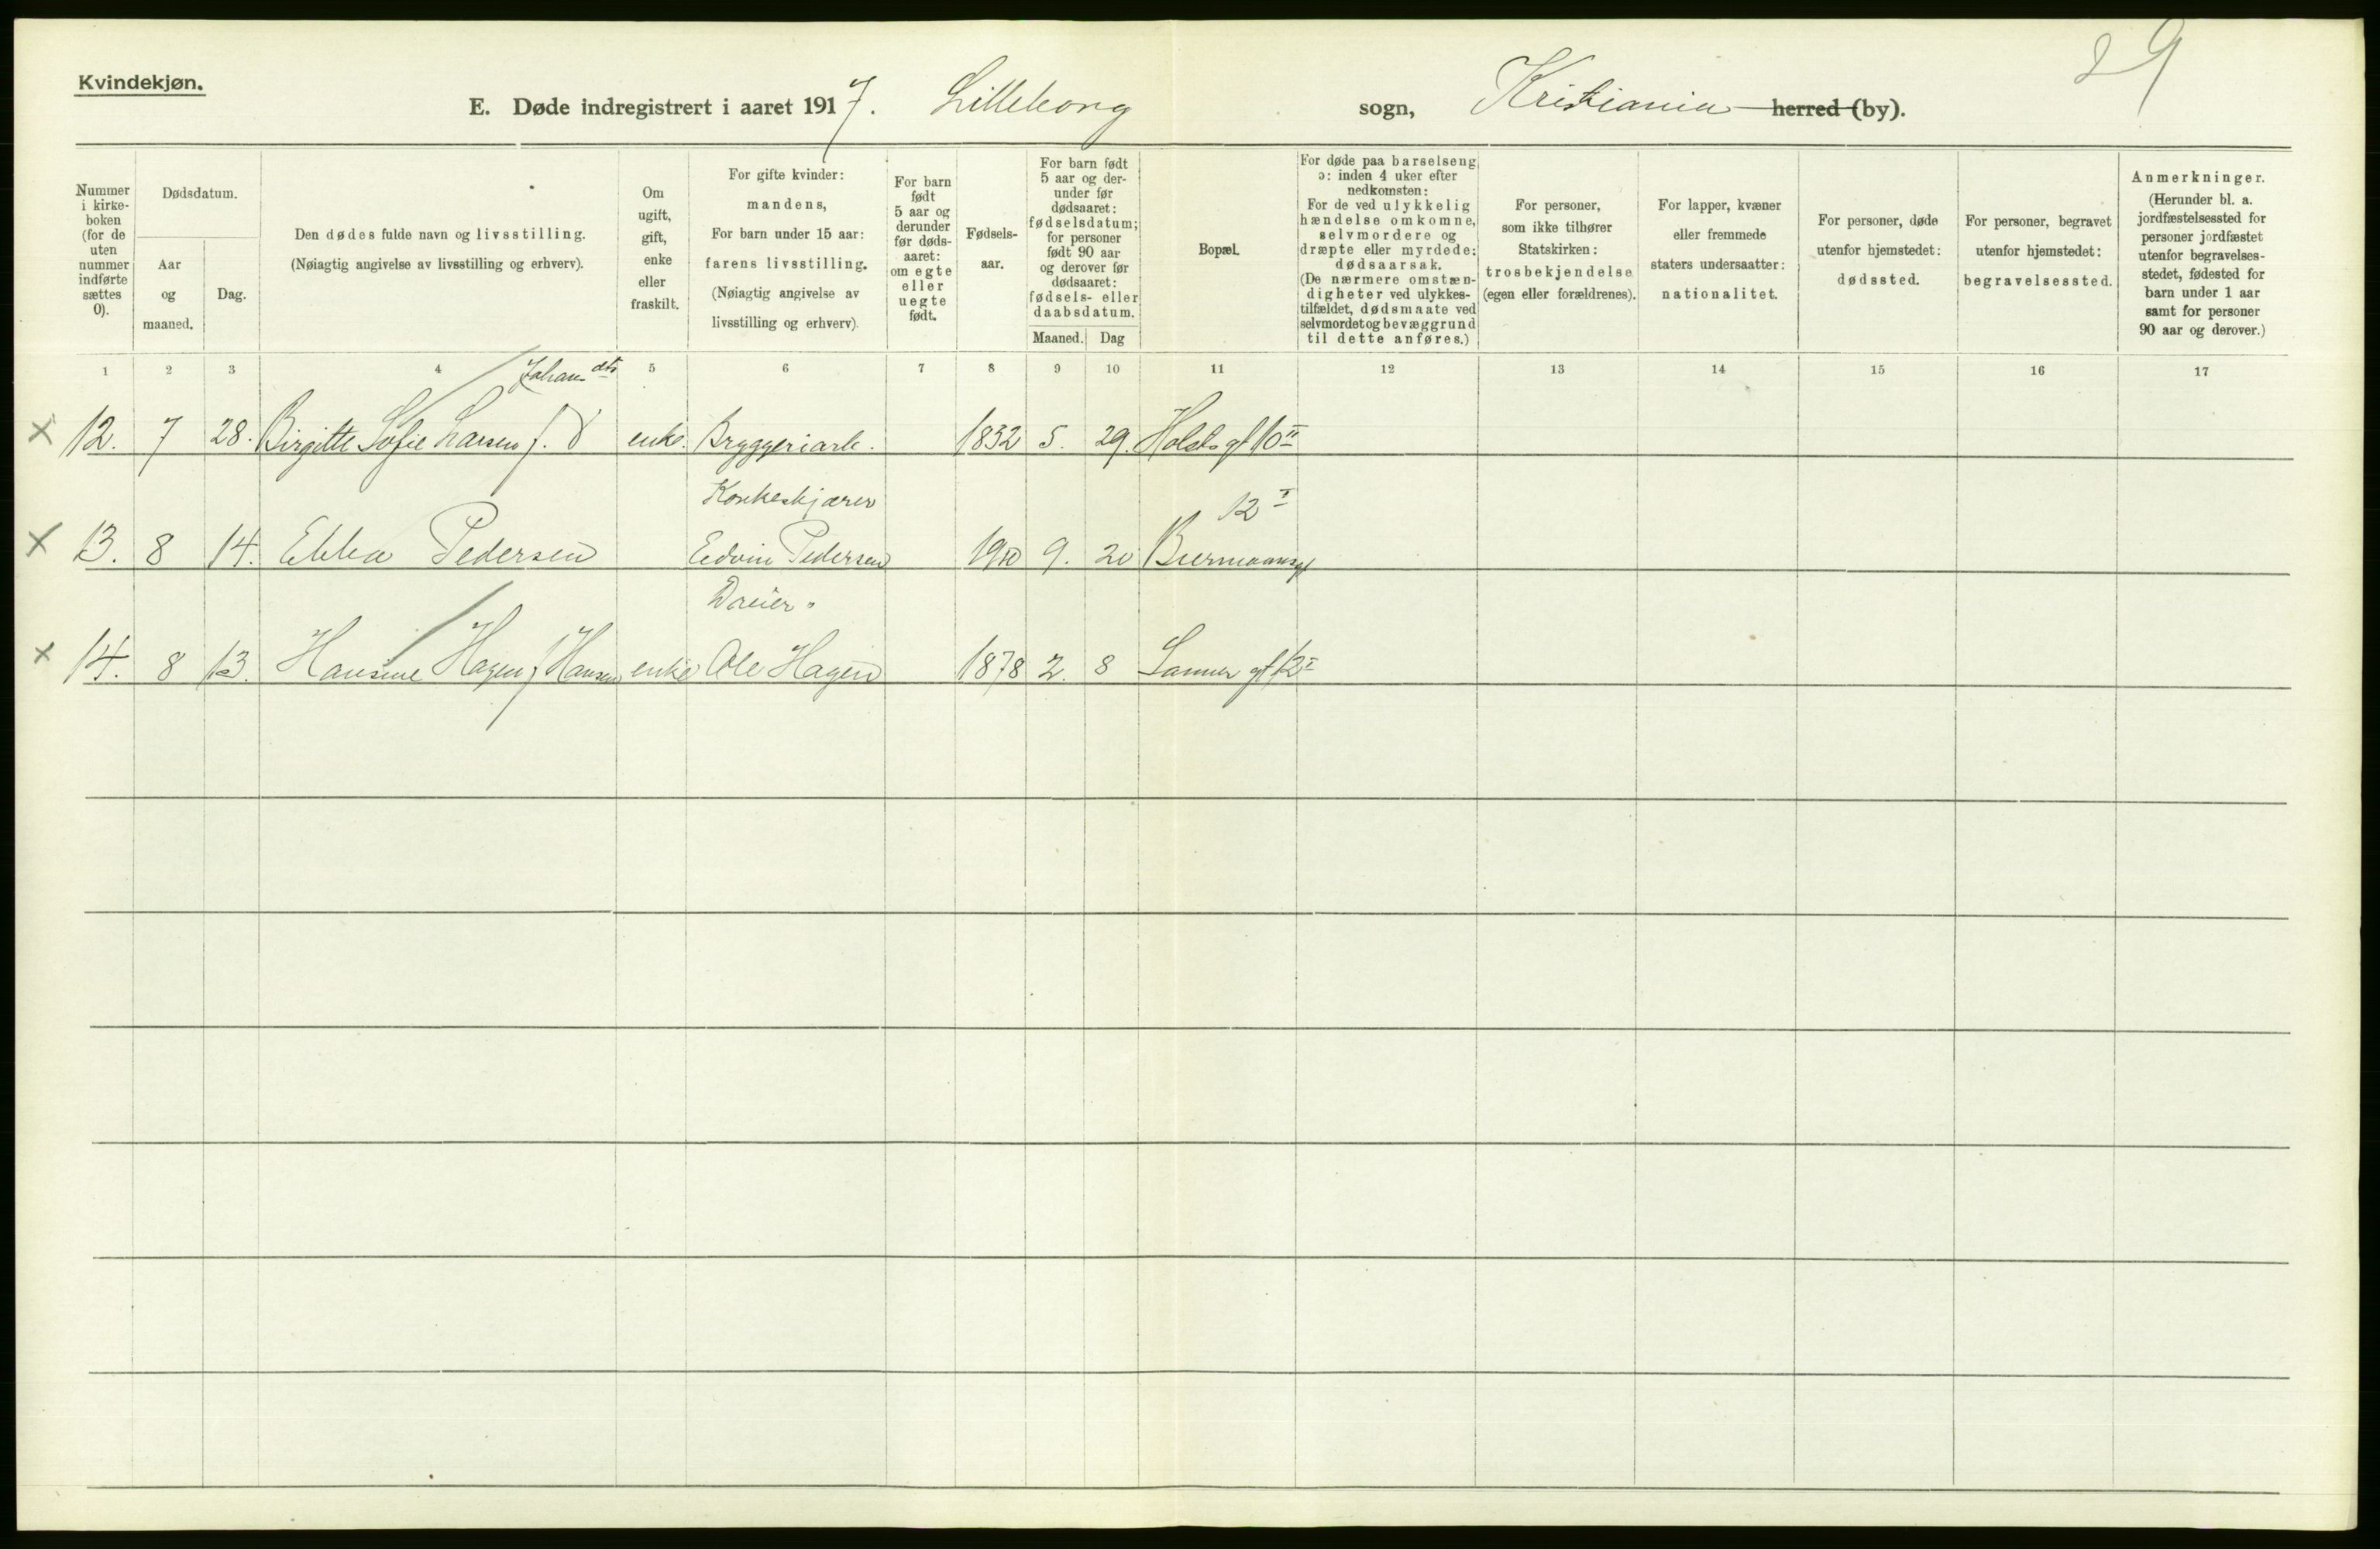 Kvindekjøn.
29
E. Døde indregistrert i aaret 1917. Lilleborg sogn, Kristiania herred (by).
Nummer i kirke-boken (for de uten nummer indførte sættes 0).
Dødsdatum.
Aar og maaned.
Dag.
Den dødes fulde navn og livsstilling.
(Nøiagtig angivelse av livsstilling og erhverv).
Om ugift, gift, enke eller fraskilt.
For gifte kvinder: mandens,
For barn under 15 aar: farens livsstilling.
(Nøiagtig angivelse av livsstilling og erhverv).
For barn født 5 aar og derunder før døds-aaret: om egte eller uegte født.
Fødsels-aar.
For barn født 5 aar og der-under før dødsaaret: fødselsdatum; for personer født 90 aar og derover før dødsaaret: fødsels- eller daabsdatum.
Maaned. Dag
Bopæl.
For døde paa barselseng ɔ: inden 4 uker efter nedkomsten:
For de ved ulykkelig hændelse omkomne, selvmordere og dræpte eller myrdede: dødsaarsak.
(De nærmere omstæn-digheter ved ulykkes-tilfældet, dødsmaate ved selvmordet og bevæggrund til dette anføres.)
For personer, som ikke tilhører Statskirken: trosbekjendelse (egen eller forældrenes).
For lapper, kvæner eller fremmede staters undersaatter: nationalitet.
For personer, døde utenfor hjemstedet: dødssted.
For personer, begravet utenfor hjemstedet: begravelsessted.
Anmerkninger.
(Herunder bl. a. jordfæstelsessted for personer jordfæstet utenfor begravelses-stedet, fødested for barn under 1 aar samt for personer 90 aar og derover.)
1 2 3 4 5 6 7 8 9 10 11 12 13 14 15 16 17
Johansdtr
x 12. 7 28. Birgitte Sofie Larsen f. enke. Bryggeriarb. 1832 5. 29. Holsts gt 10 II
Korkeskjærer 12 I
x 13. 8 14. Ebba Pedersen Edvin Pedersen 1910 9. 20 Biermannsgt
Dreier
x 14. 8 13. Hansine Hagen f Hansen enke Ole Hagen 1878 2. 8 Sanner gt 12 I